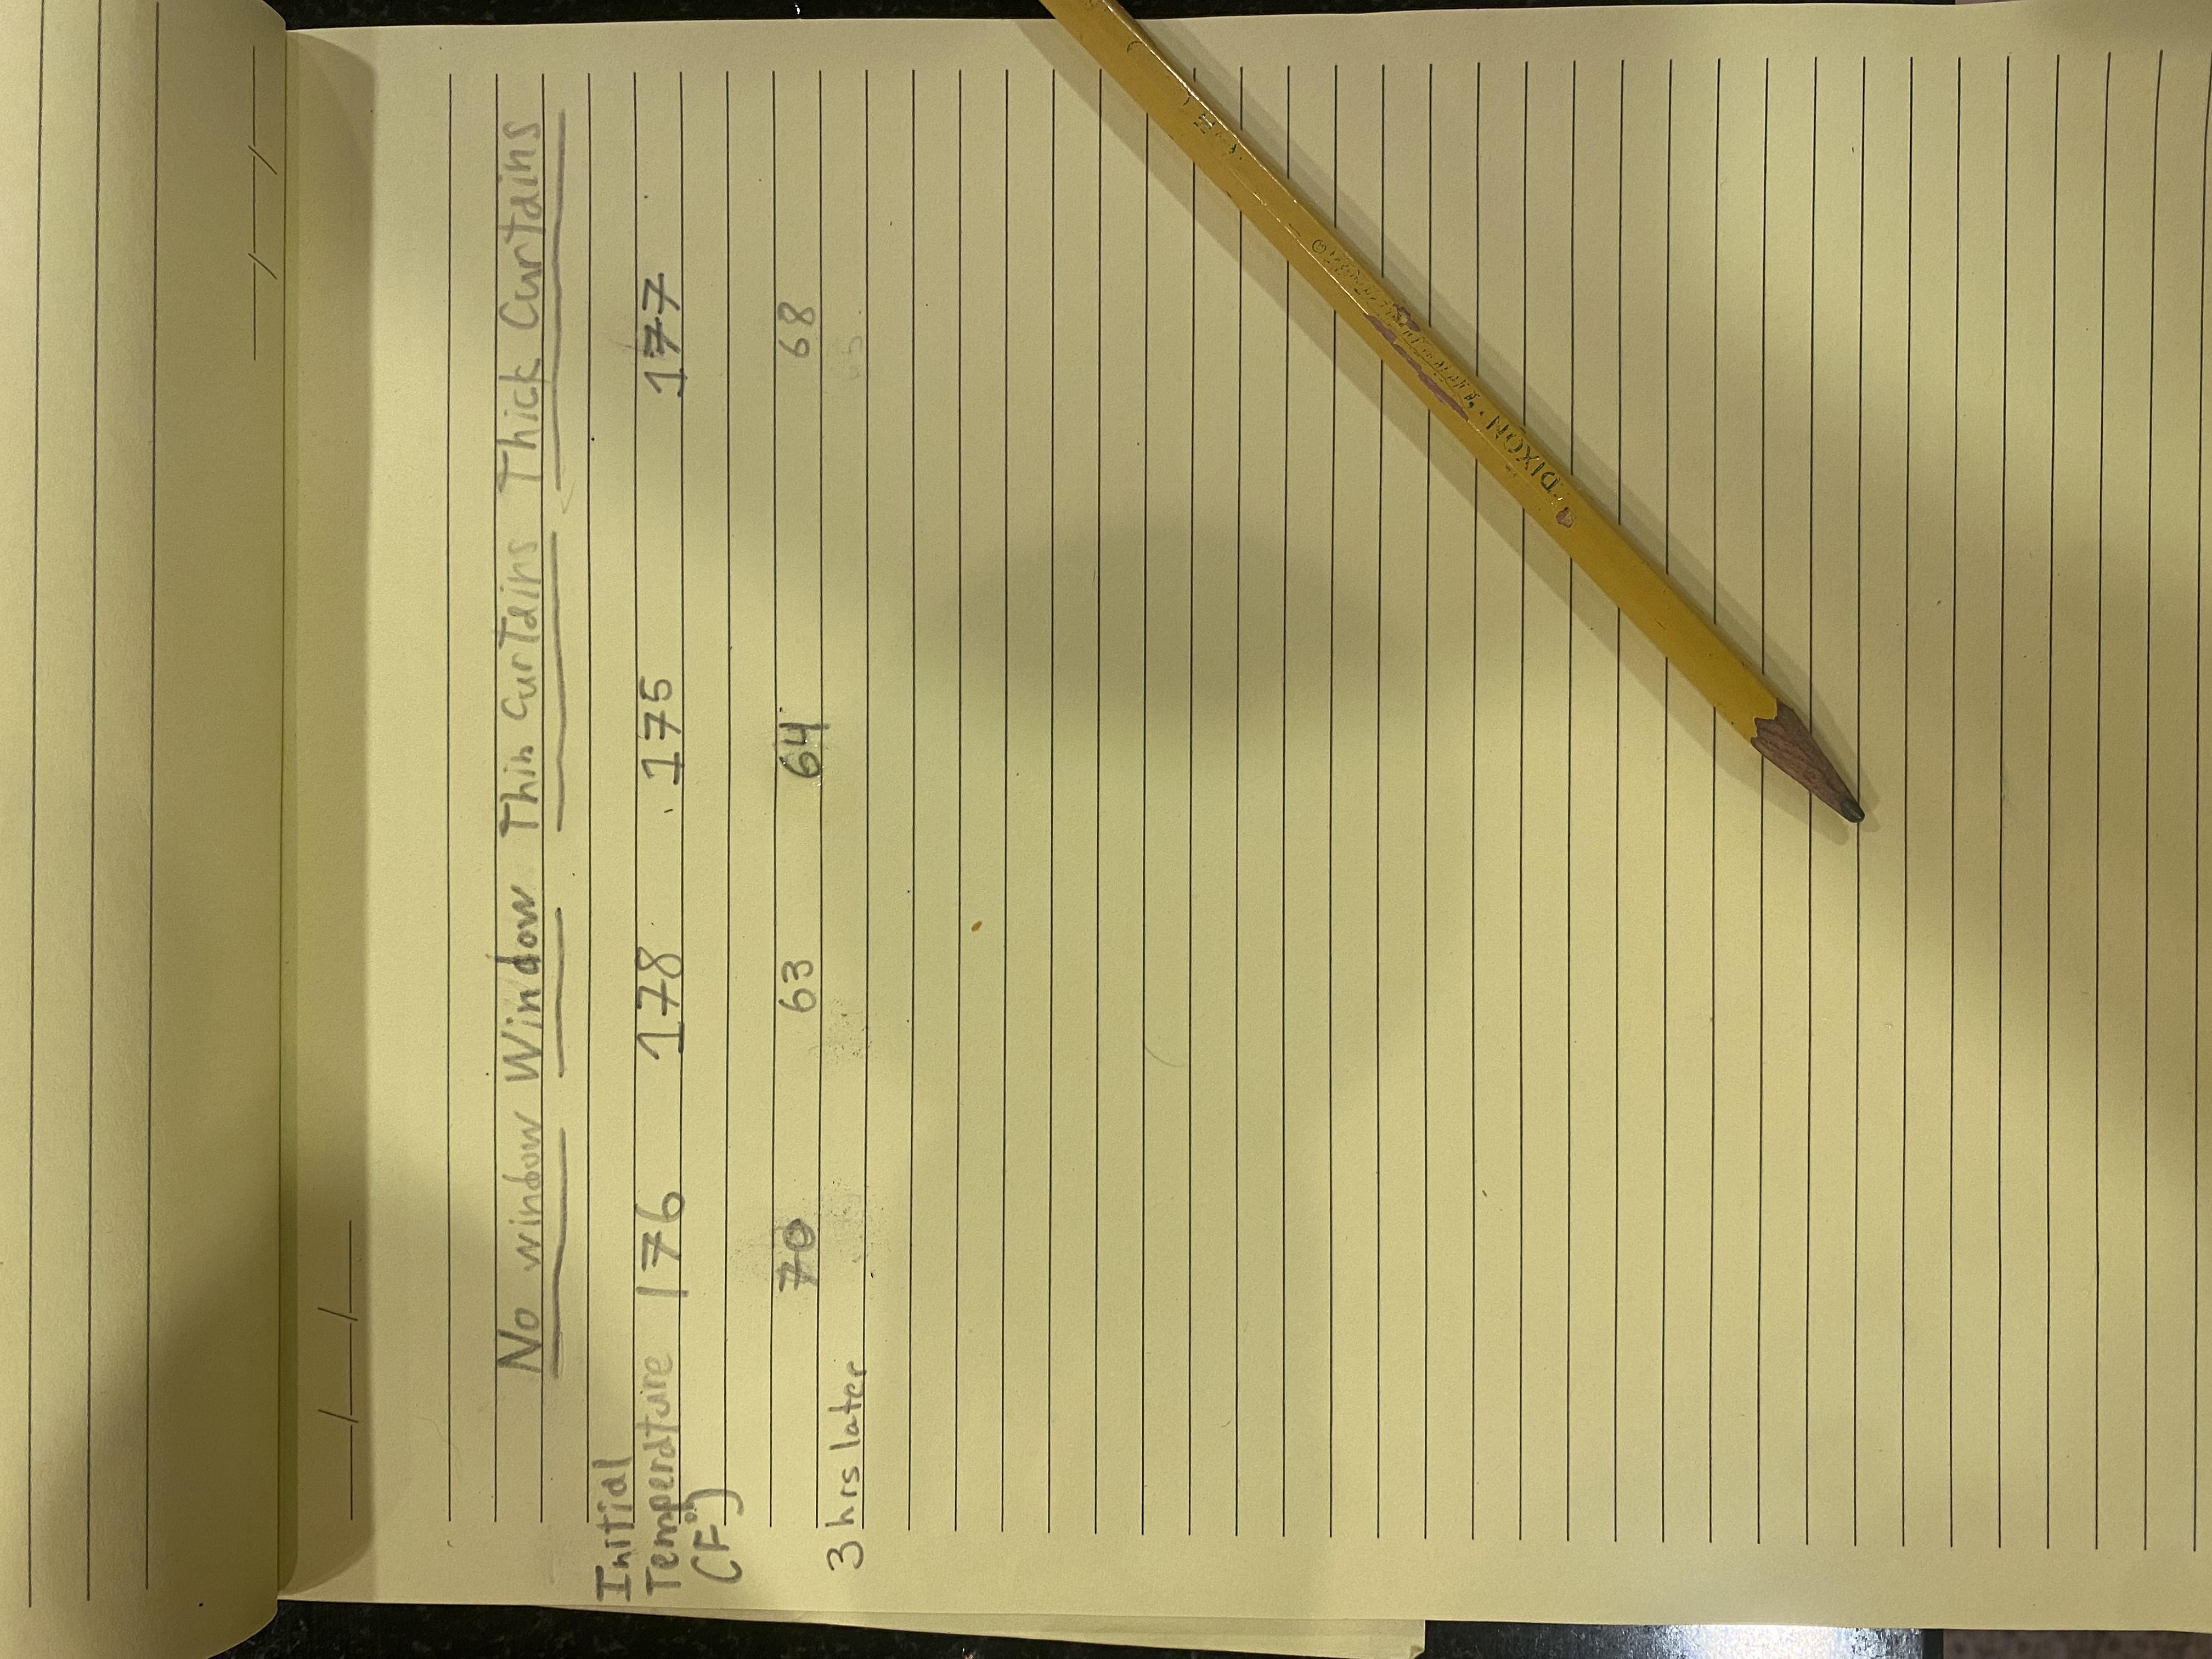 No window Window Thin Curtains Thick Curtains
Initial
Temperature 176 178 175 177
(F°)
70 63 64 68
3 hrs later
DIXON